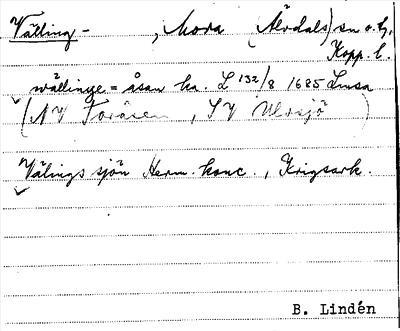 Välling - , Mora (Älvdals) sn o. h,
Kopp. l.
wällinge = åsan ka. L 132/8 1685 Lmsa
(NV Foråsen, SV Ulvsjö)
Välings sjön Herm. konc., Krigsark.
B. Lindén